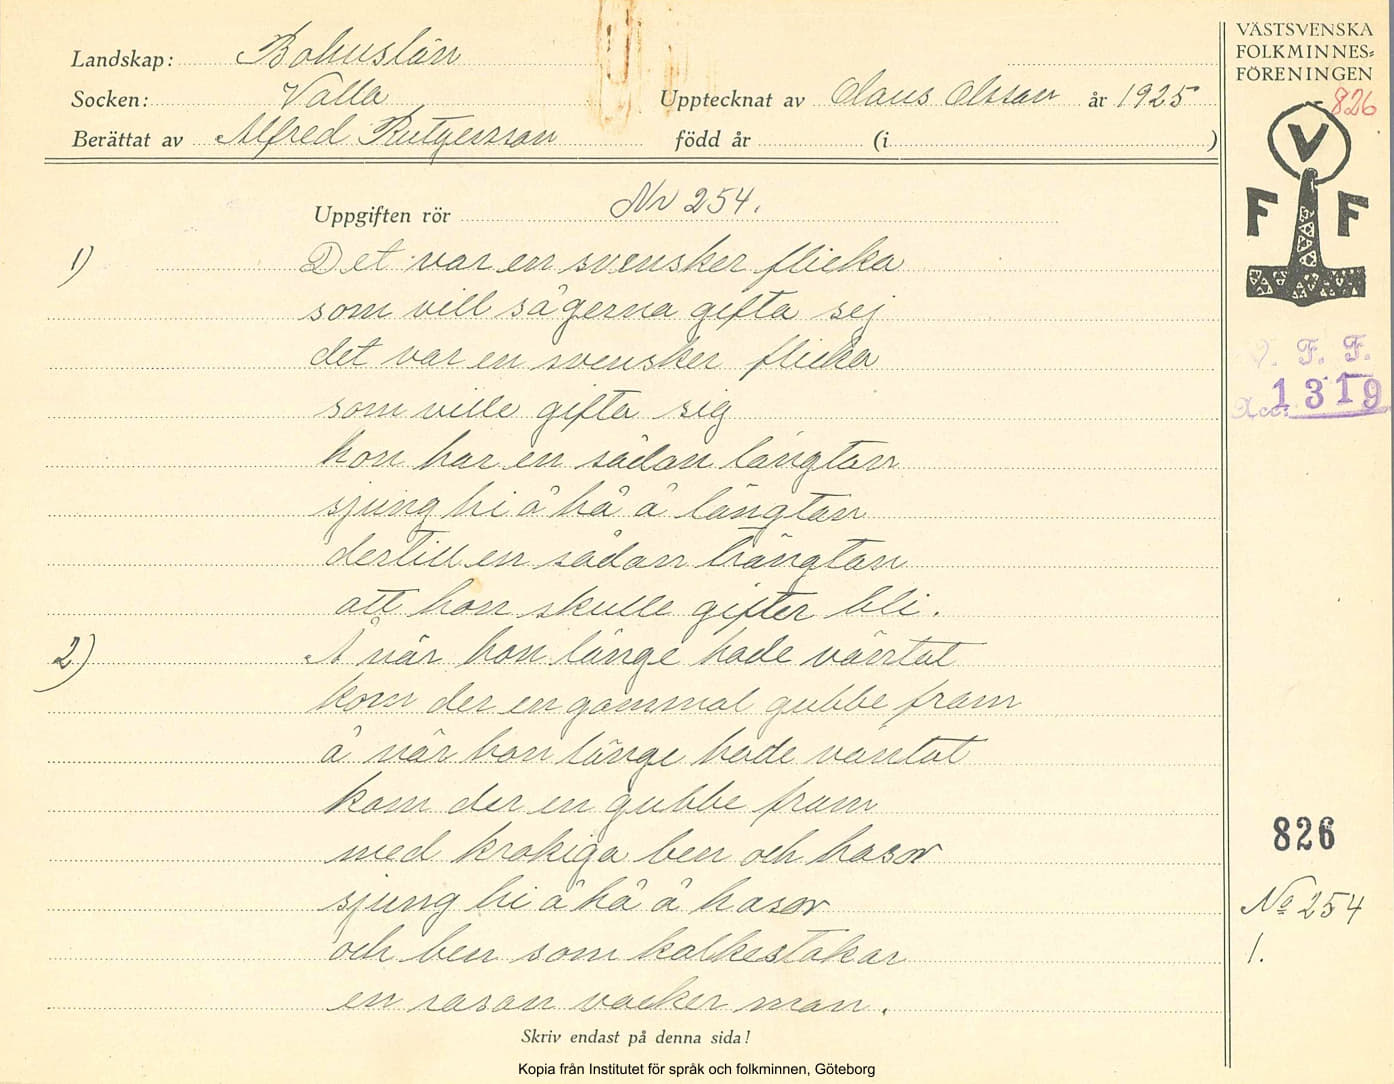 Landskap: Bohuslän
Socken: Valla
Upptecknat av Claus Olsson år 1925
Berättat av Alfred Rutgersson
född år (i )
VÄSTSVENSKA
FOLKMINNES=
FÖRENINGEN
826
V
F F
V. F. F.
Acc. 1319
Uppgiften rör Nr 254.
1) Det var en svensker flicka
som vill så gerna gifta sej
det var en svensker flicka
som ville gifta sig
hon har en sådan längtan
sjung hi å hå å längtan
dertill en sådan trängtan
att hon skulle gifter bli.
2) Å när hon länge hade väntat
kom der en gammal gubbe fram
å när hon länge hade väntat
kom der en gubbe fram
med krokiga ben och hasor
sjung hi å hå å hasor
och ben som kalkestakar
en sasan vacker man.
826
No 254
1.
Skriv endast på denna sida!
Kopia från Institutet för språk och folkminnen, Göteborg